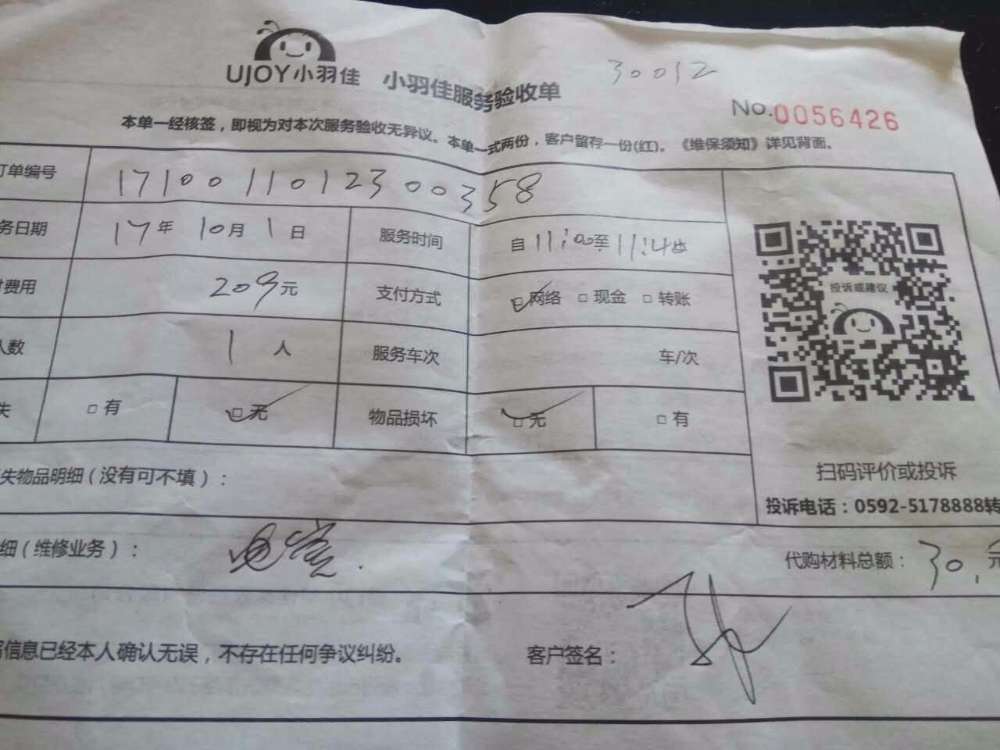 UJOY小羽佳 小羽佳服务验收单
30012
No.0056426
本单一经核签，即视为对本次服务验收无异议。本单一式两份，客户留存一份(红)。《维保须知》详见背面。
订单编号 1710011012300358
务日期 17年 10月 1日 服务时间 自11:00至11:40
费用 209元 支付方式 □网络 □现金 □转账
人数 1 人 服务车次 车/次
投诉或建议
失 □有 □无 物品损坏 □无 □有
扫码评价或投诉
失物品明细(没有可不填)：
投诉电话：0592-5178888转
细(维修业务)：
代购材料总额：30.元
信息已经本人确认无误，不存在任何争议纠纷。 客户签名：